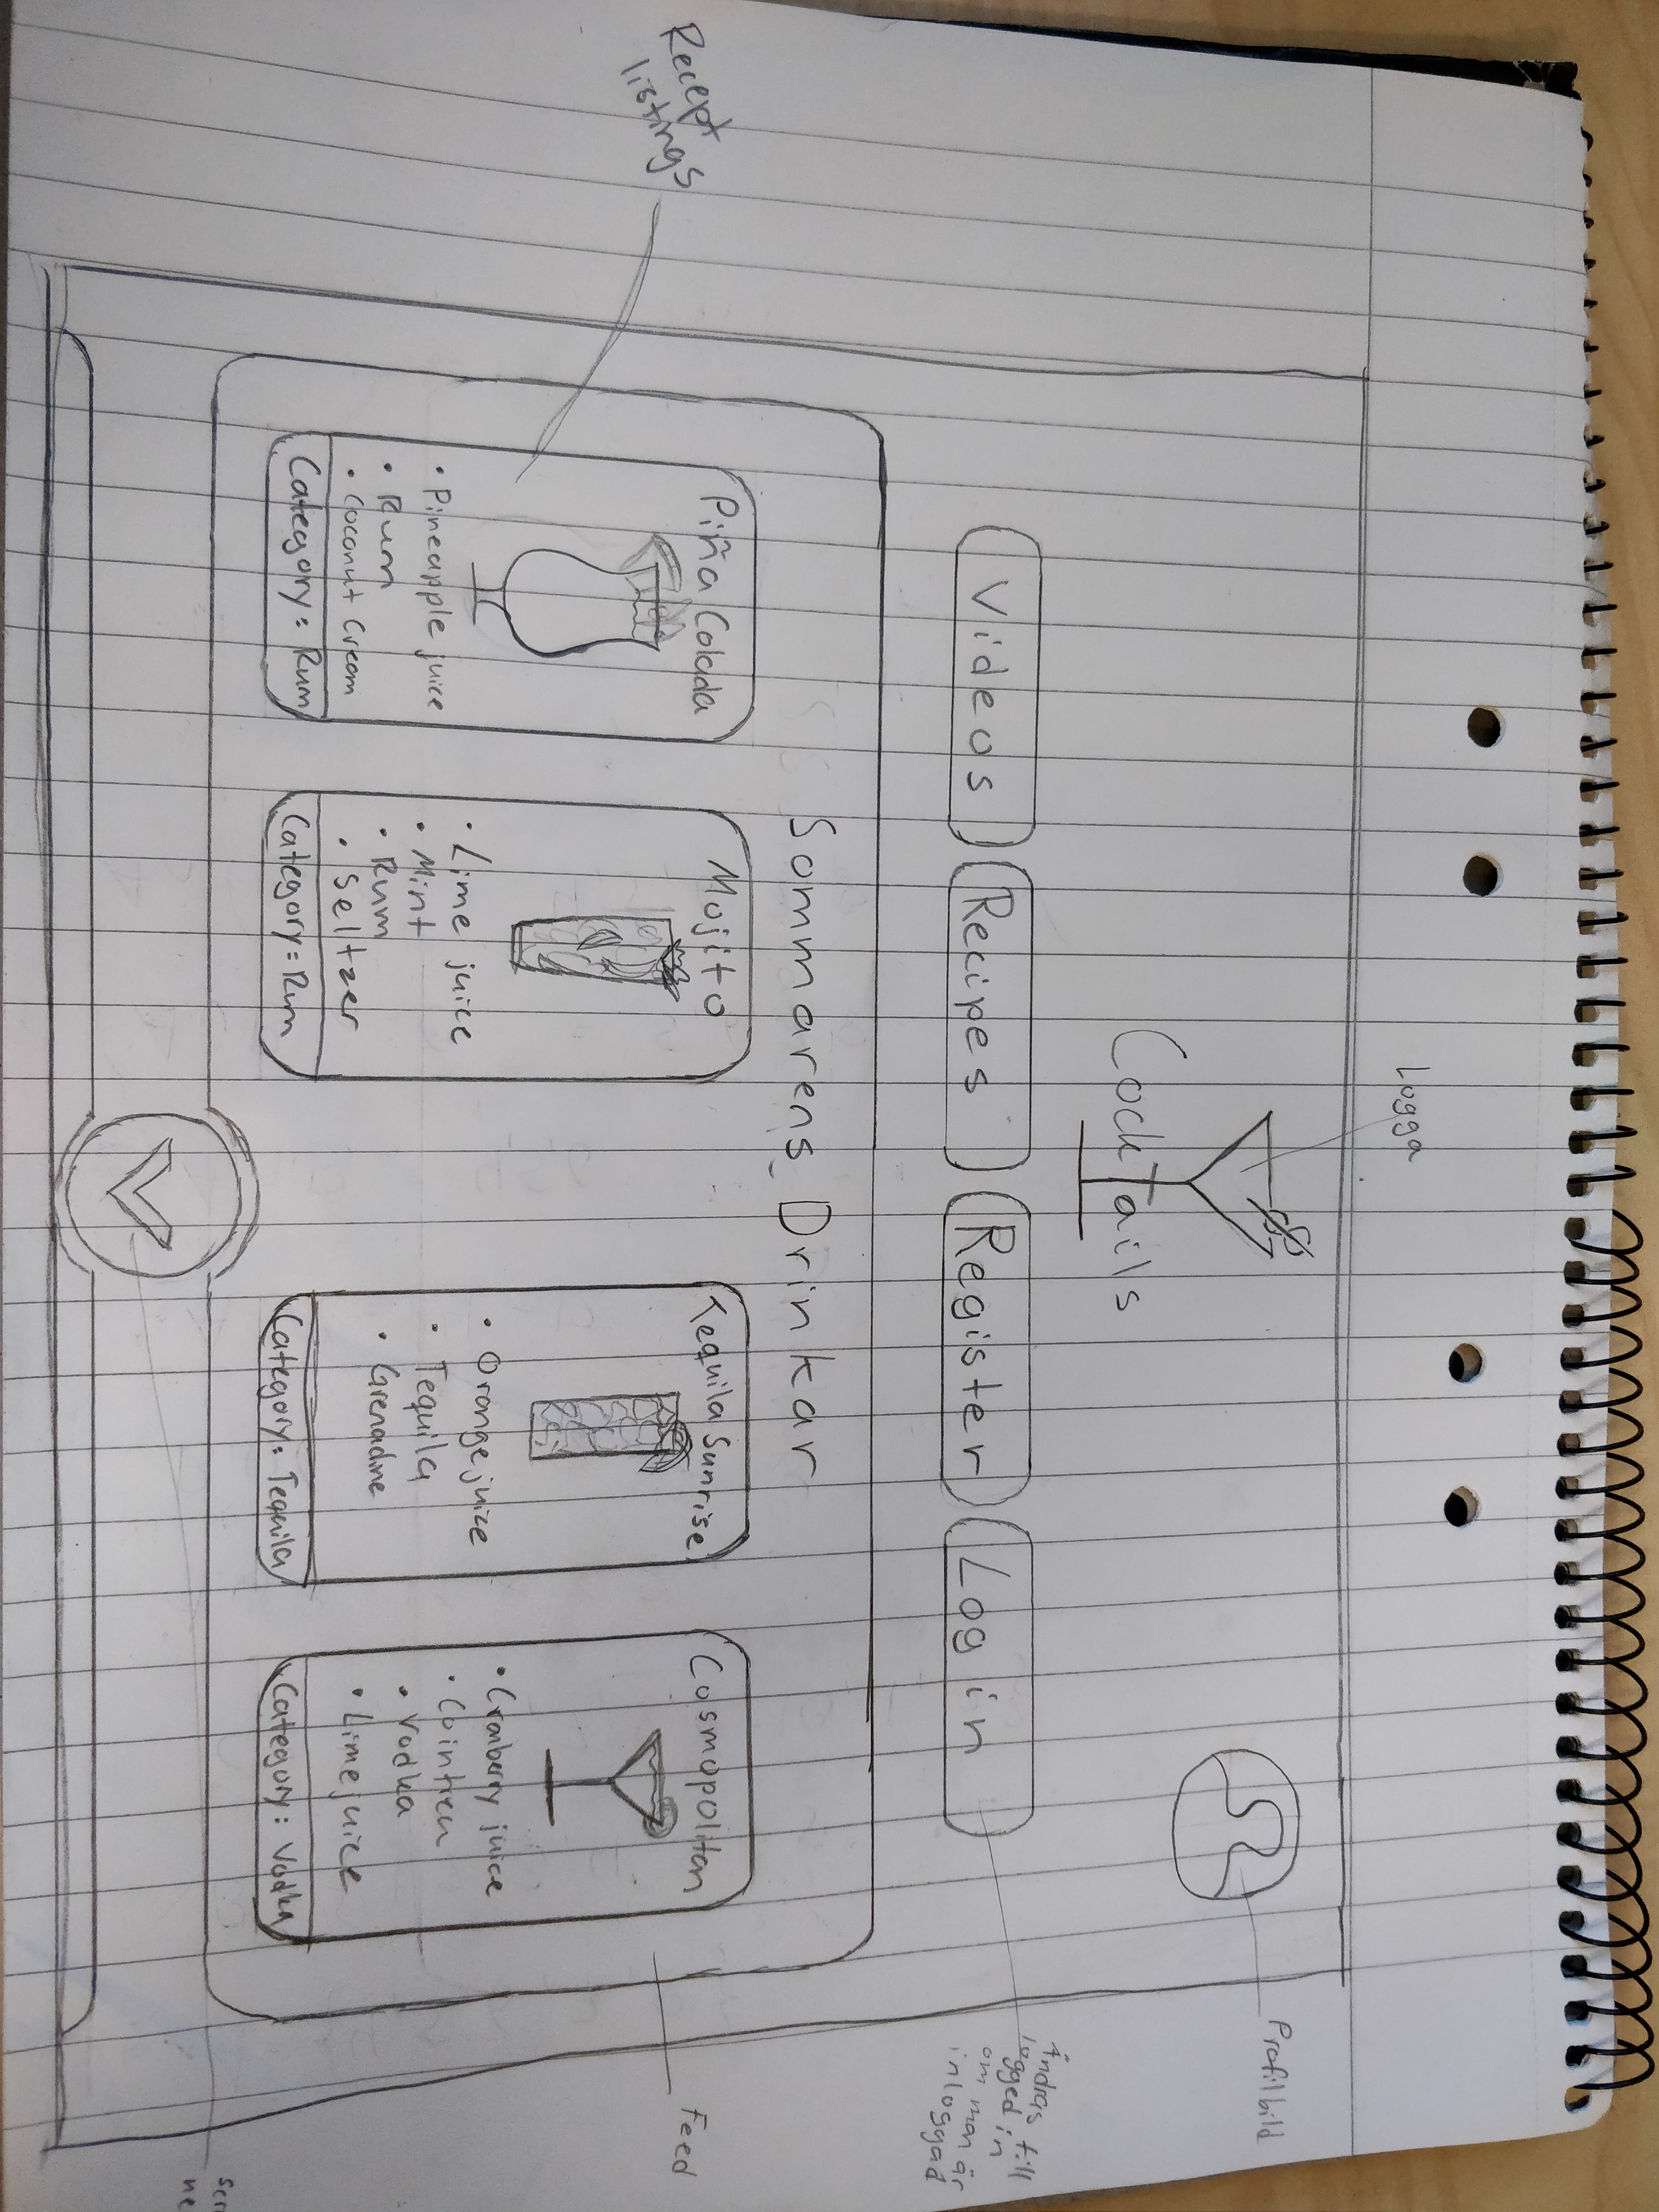 Logga
Profilbild
Cocktails
Videos
Recipes
Register
Login
Ändras till
logged in
om man är
inloggad
Recept
listings
Sommarens Drinkar
Feed
Piña Colada
• Pineapple juice
• Rum
• Coconut Cream
Category: Rum
Mojito
• Lime juice
• Mint
• Rum
• Seltzer
Category: Rum
Tequila Sunrise
• Orange juice
• Tequila
• Grenadine
Category: Tequila
Cosmopolitan
• Cranberry juice
• Cointreu
• Vodka
• Lime juice
Category: Vodka